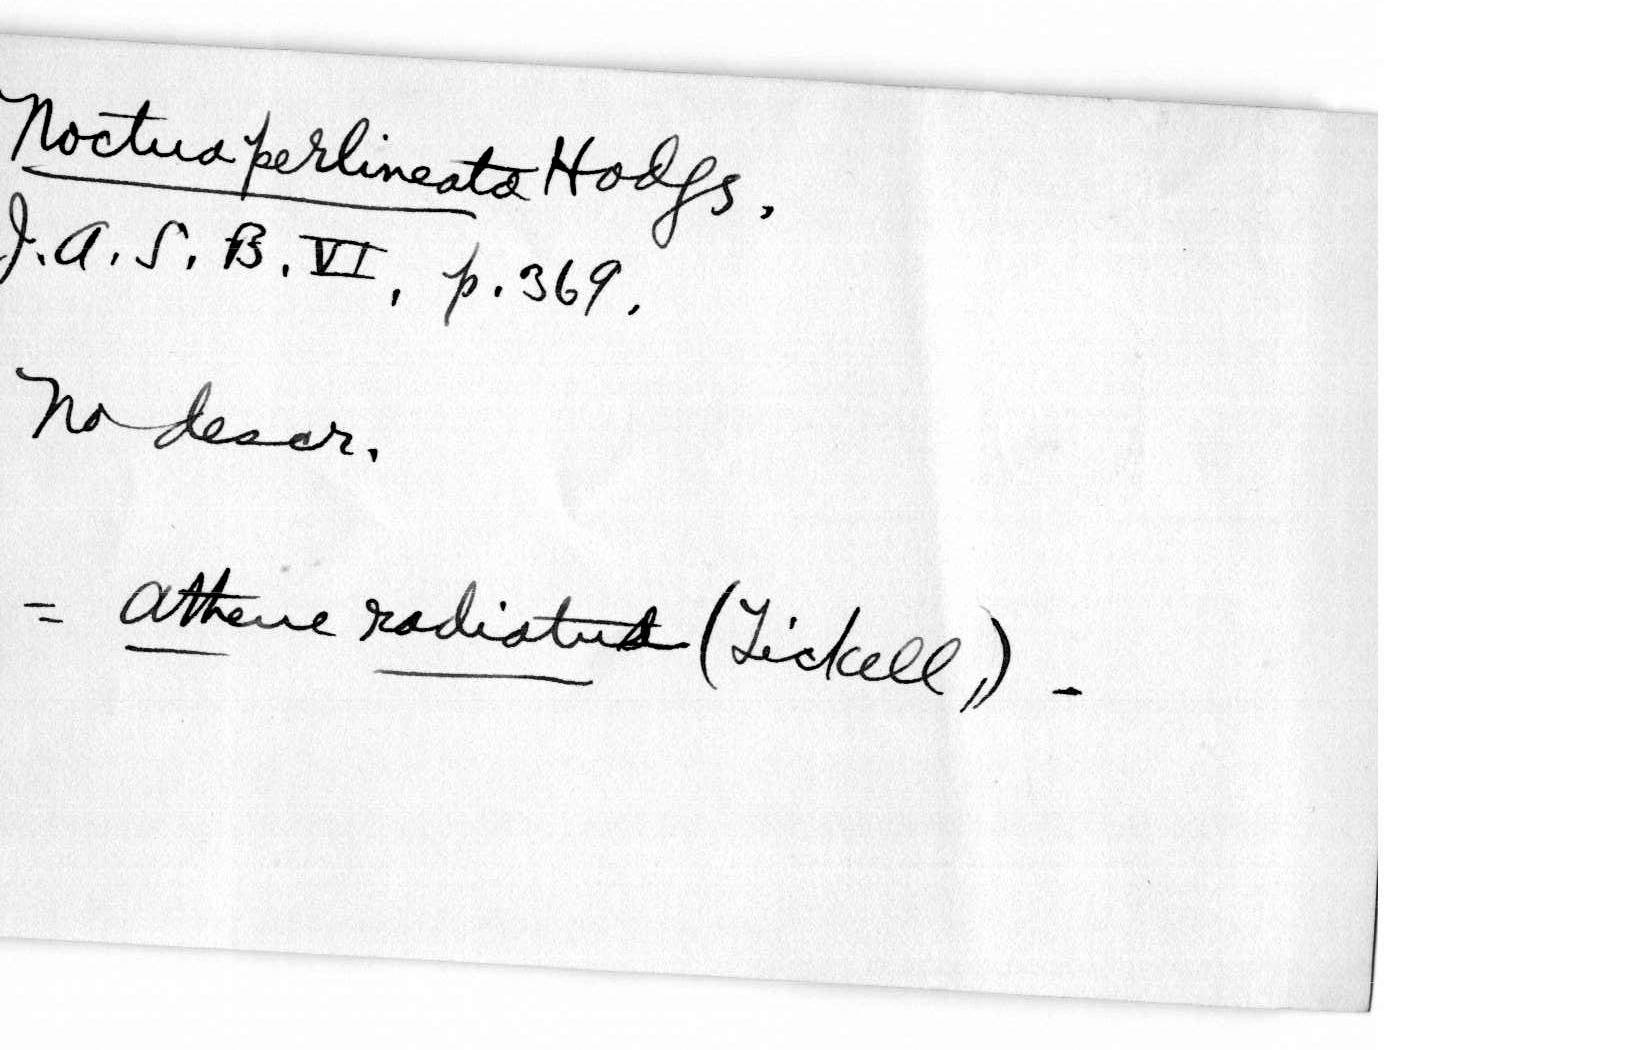 Noctua perlineata Hodgs.
J.A.S.B. VI, p. 369.
No descr.
= Athene radiatus (Tickell,) -